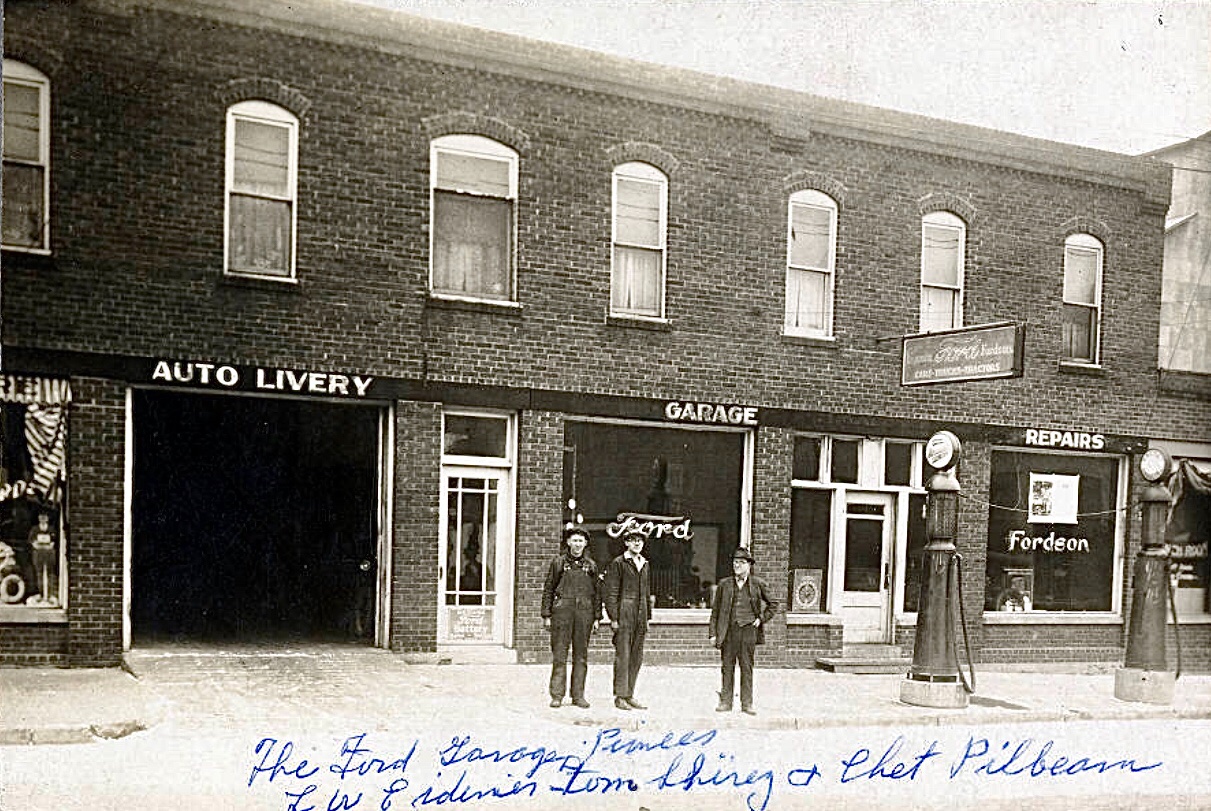 AUTO LIVERY
GARAGE
REPAIRS
Ford Fordsons
CARS-TRUCKS-TRACTORS
Ford
Fordson
Ford
Battery
The Ford Garage,
L W
Tom & Chet Pilbeam